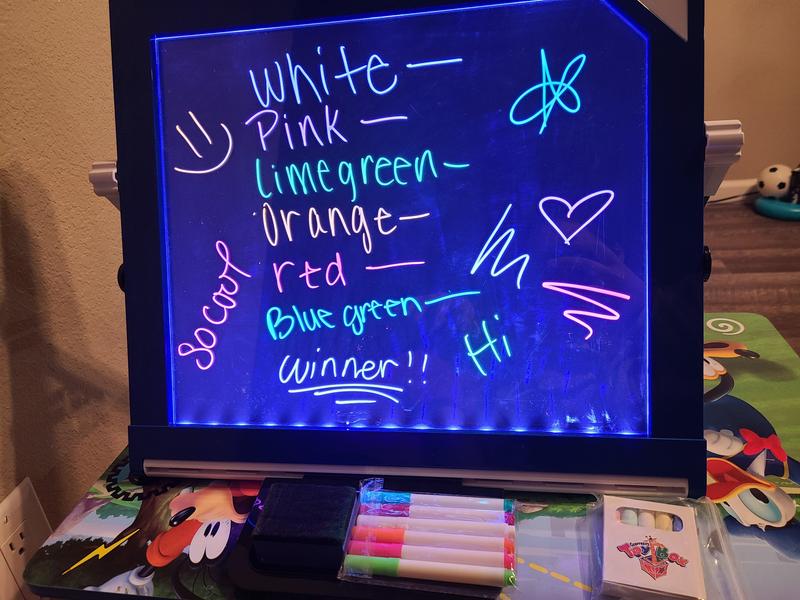 White —
Pink —
Limegreen —
Orange —
red —
Blue green —
winner!!
So cool
Hi
Toy Box